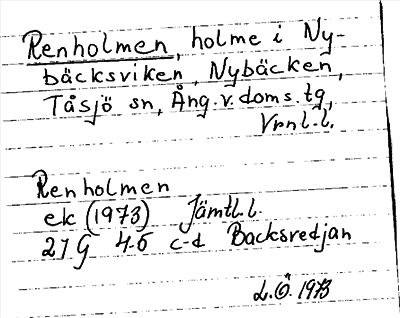 Renholmen, holme i Ny-
bäcksviken, Nybäcken,
Tåsjö sn, Ång.v.doms.tg,
Vrnl.l.
Renholmen
ek (1973) Jämtl.l.
21 G 4-5 c-d Backsredjan
L.Ö. 1973